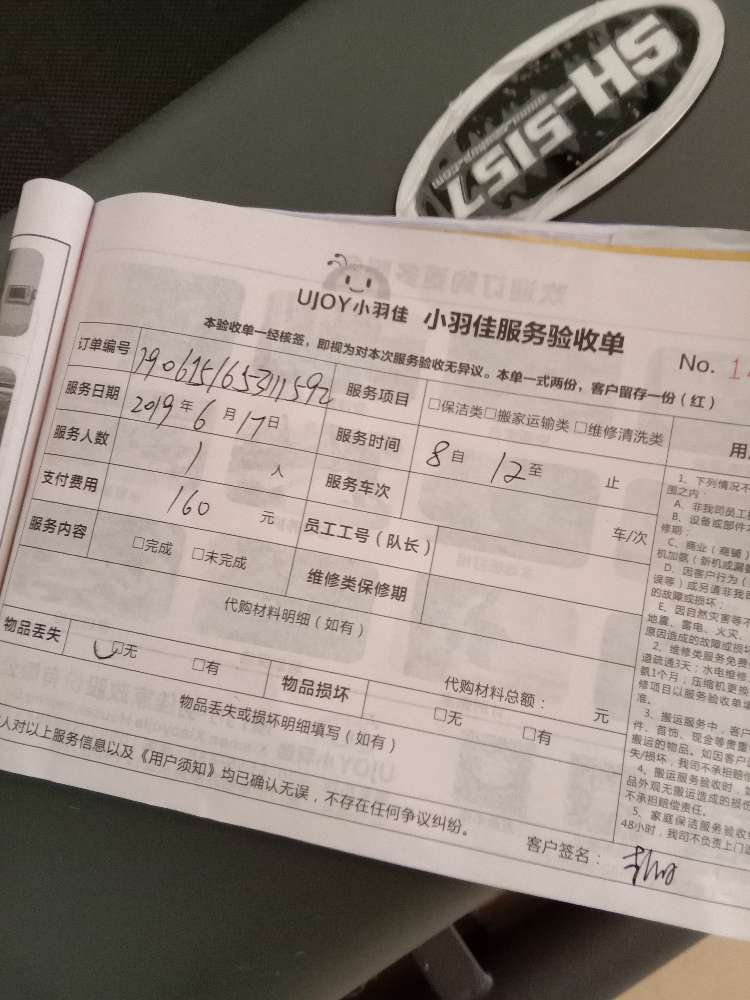 SH-5157
UJOY小羽佳 小羽佳服务验收单
No. 14
本验收单一经核签，即视为对本次服务验收无异议。本单一式两份，客户留存一份（红）
订单编号 190615165311592 服务项目 □保洁类□搬家运输类□维修清洗类
服务日期 2019年6月17日 服务时间 8自 12至 止
服务人数 1人 服务车次 车/次
支付费用 160元 员工工号（队长）
服务内容 □完成 □未完成 维修类保修期
代购材料明细（如有）
代购材料总额： 元
物品丢失 □无 □有 物品损坏 □无 □有
物品丢失或损坏明细填写（如有）
人对以上服务信息以及《用户须知》均已确认无误，不存在任何争议纠纷。
客户签名：
用
1、下列情况不
围之内：
A、非我司员工
B、设备或部件
修期；
C、商业（商铺）
机加氨（新机或漏氨
D、因客户行为（
误等）或另请非我
的故障或损坏；
E、因自然灾害等不
地震、雷电、火灾、
原因造成的故障或损坏
2、维修类服务免费
道疏通3天；水电维修
氨1个月；压缩机更换
修项目以服务验收单
准。
3、搬运服务中，客户
件、首饰、现金等贵重
搬运的物品。如因客户
失/损坏，我司不承担赔
4、搬运服务验收时，如
品外观无搬运造成的损
不承担赔偿责任。
5、家庭保洁服务验收
48小时，我司不负责上门